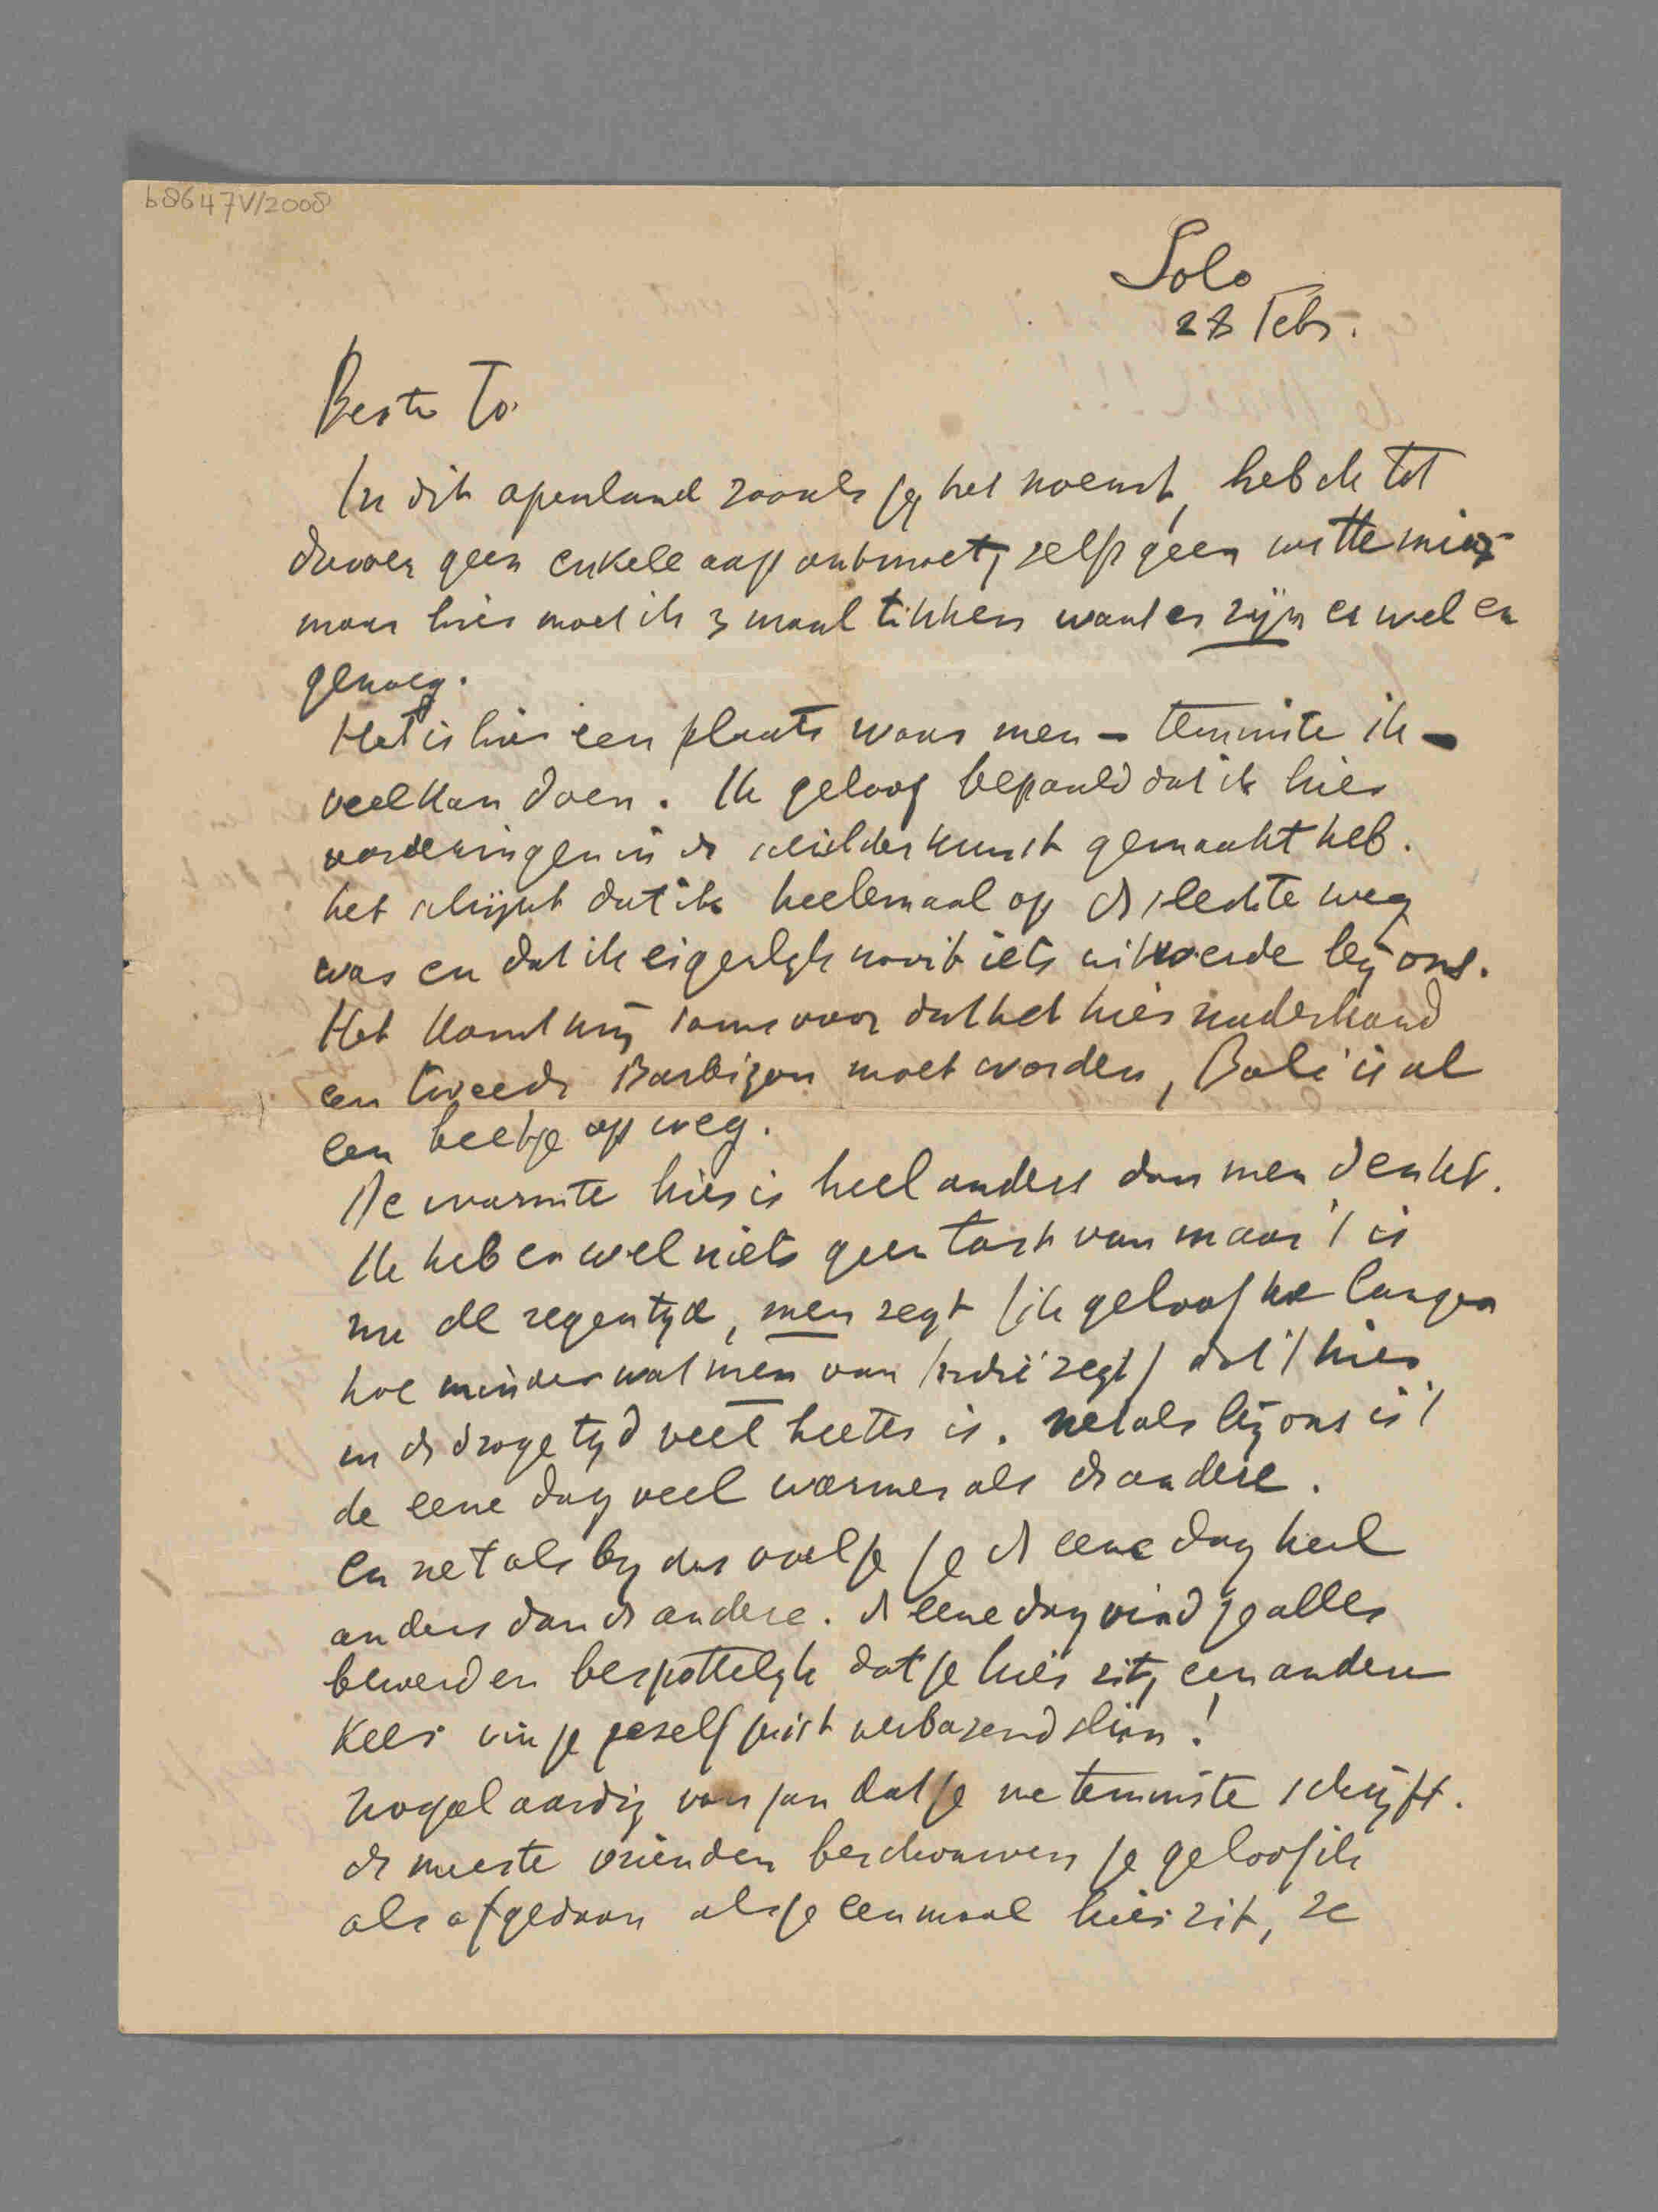 b8647V/2008
Solo
28 Febr.
Beste To.
In dit apenland zooals jij het noemt, heb ik tot
dusver geen enkele aap ontmoet, zelfs geen witte
maar hier moet ik 3 maal tikken want er zijn er wel en
genoeg.
Het is hier een plaats waar men – tenminste ik –
veel kan doen. Ik geloof bepaald dat ik hier
vorderingen in de schilderkunst gemaakt heb.
het schijnt dat ik heelemaal op de slechte weg
was en dat ik eigenlijk nooit iets uitvoerde bij ons.
Het komt mij soms voor dat het hier naderhand
een tweede Barbizon moet worden, Bali is al
een beetje op weg.
De warmte hier is heel anders dan men denkt.
Ik heb er wel niets geen last van maar 't is
nu de regentijd, men zegt (ik geloof hoe langer
hoe minder wat men van Indië zegt) dat 't hier
in de droge tijd veel heeter is. net als bij ons is 't
de eene dag veel warmer als de andere.
En net als bij ons voel je je de eene dag heel
anders dan de andere. de eene dag vind je alles
beroerd en bespottelijk dat je hier zit, een andere
keer vin je jezelf juist verbazend slim!
nogal aardig van jou dat je me tenminste schrijft.
de meeste vrienden beschouwen je geloof ik
als afgedaan als je eenmaal hier zit, ze